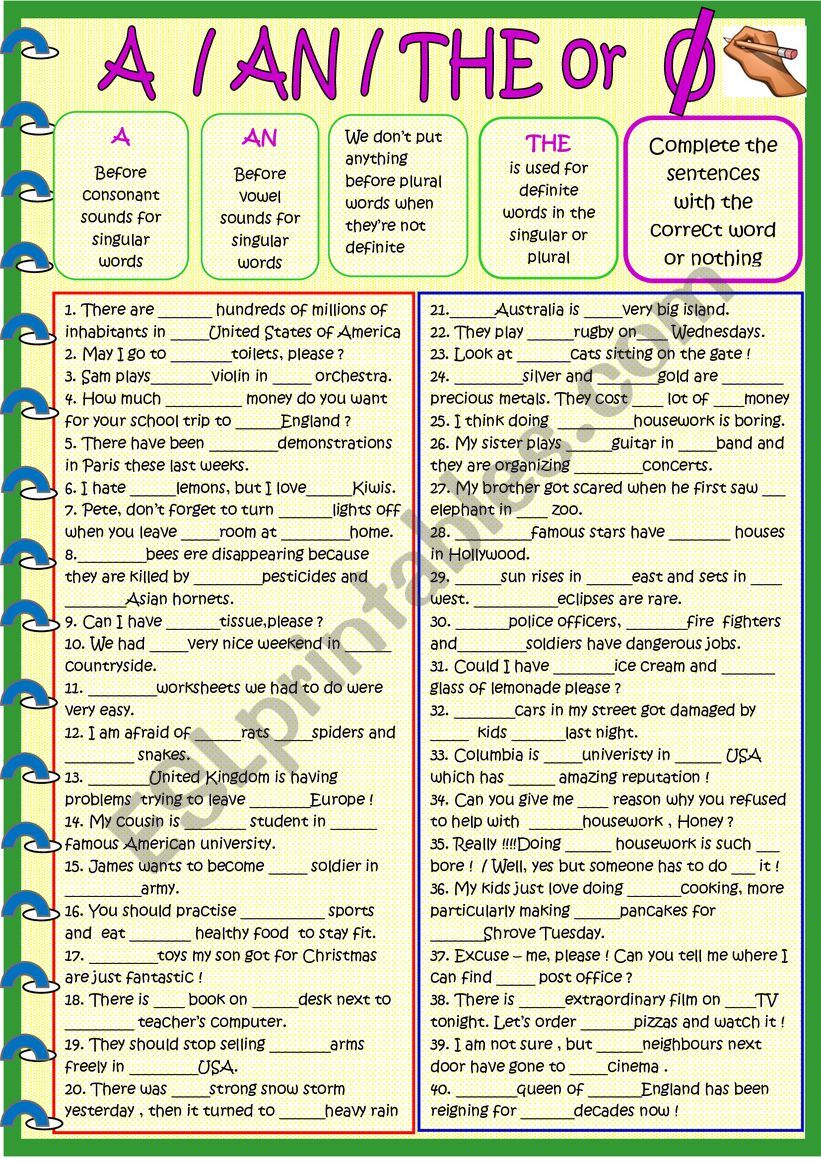 A / AN / THE or Ø
A
Before
consonant
sounds for
singular
words
AN
Before
vowel
sounds for
singular
words
We don't put
anything
before plural
words when
they're not
definite
THE
is used for
definite
words in the
singular or
plural
Complete the
sentences
with the
correct word
or nothing
1. There are _______ hundreds of millions of
inhabitants in _____United States of America
2. May I go to ________toilets, please ?
3. Sam plays________violin in _____ orchestra.
4. How much __________ money do you want
for your school trip to ______England ?
5. There have been _________demonstrations
in Paris these last weeks.
6. I hate ______lemons, but I love______Kiwis.
7. Pete, don't forget to turn _______lights off
when you leave _____room at _________home.
8._________bees ere disappearing because
they are killed by _________pesticides and
________Asian hornets.
9. Can I have _______tissue,please ?
10. We had _____very nice weekend in ______
countryside.
11. _________worksheets we had to do were
very easy.
12. I am afraid of _____rats_____spiders and
_________ snakes.
13. ________United Kingdom is having
problems trying to leave ________Europe !
14. My cousin is ________ student in ______
famous American university.
15. James wants to become _____ soldier in
__________army.
16. You should practise ___________ sports
and eat ________ healthy food to stay fit.
17. _________toys my son got for Christmas
are just fantastic !
18. There is ____ book on ______desk next to
_________ teacher's computer.
19. They should stop selling ________arms
freely in _________USA.
20. There was _____strong snow storm
yesterday , then it turned to ______heavy rain
21.______Australia is _____very big island.
22. They play ______rugby on____ Wednesdays.
23. Look at _______cats sitting on the gate !
24. _________silver and ________gold are ________
precious metals. They cost ____ lot of ____money
25. I think doing __________housework is boring.
26. My sister plays______guitar in _____band and
they are organizing _________concerts.
27. My brother got scared when he first saw ___
elephant in ____ zoo.
28. __________famous stars have ________ houses
in Hollywood.
29. ______sun rises in ______east and sets in ____
west. ___________eclipses are rare.
30. _______police officers, ________fire fighters
and_________soldiers have dangerous jobs.
31. Could I have ________ice cream and _______
glass of lemonade please ?
32. ________cars in my street got damaged by
_____ kids _______last night.
33. Columbia is _____univeristy in ______ USA
which has ______ amazing reputation !
34. Can you give me ____ reason why you refused
to help with _______housework , Honey ?
35. Really !!!!Doing ______ housework is such ___
bore ! / Well, yes but someone has to do ___ it !
36. My kids just love doing _______cooking, more
particularly making ______pancakes for
_______Shrove Tuesday.
37. Excuse – me, please ! Can you tell me where I
can find _____ post office ?
38. There is ______extraordinary film on ____TV
tonight. Let's order _______pizzas and watch it !
39. I am not sure , but ______neighbours next
door have gone to _____cinema .
40. ________queen of _______England has been
reigning for _______decades now !
ESLprintables.com